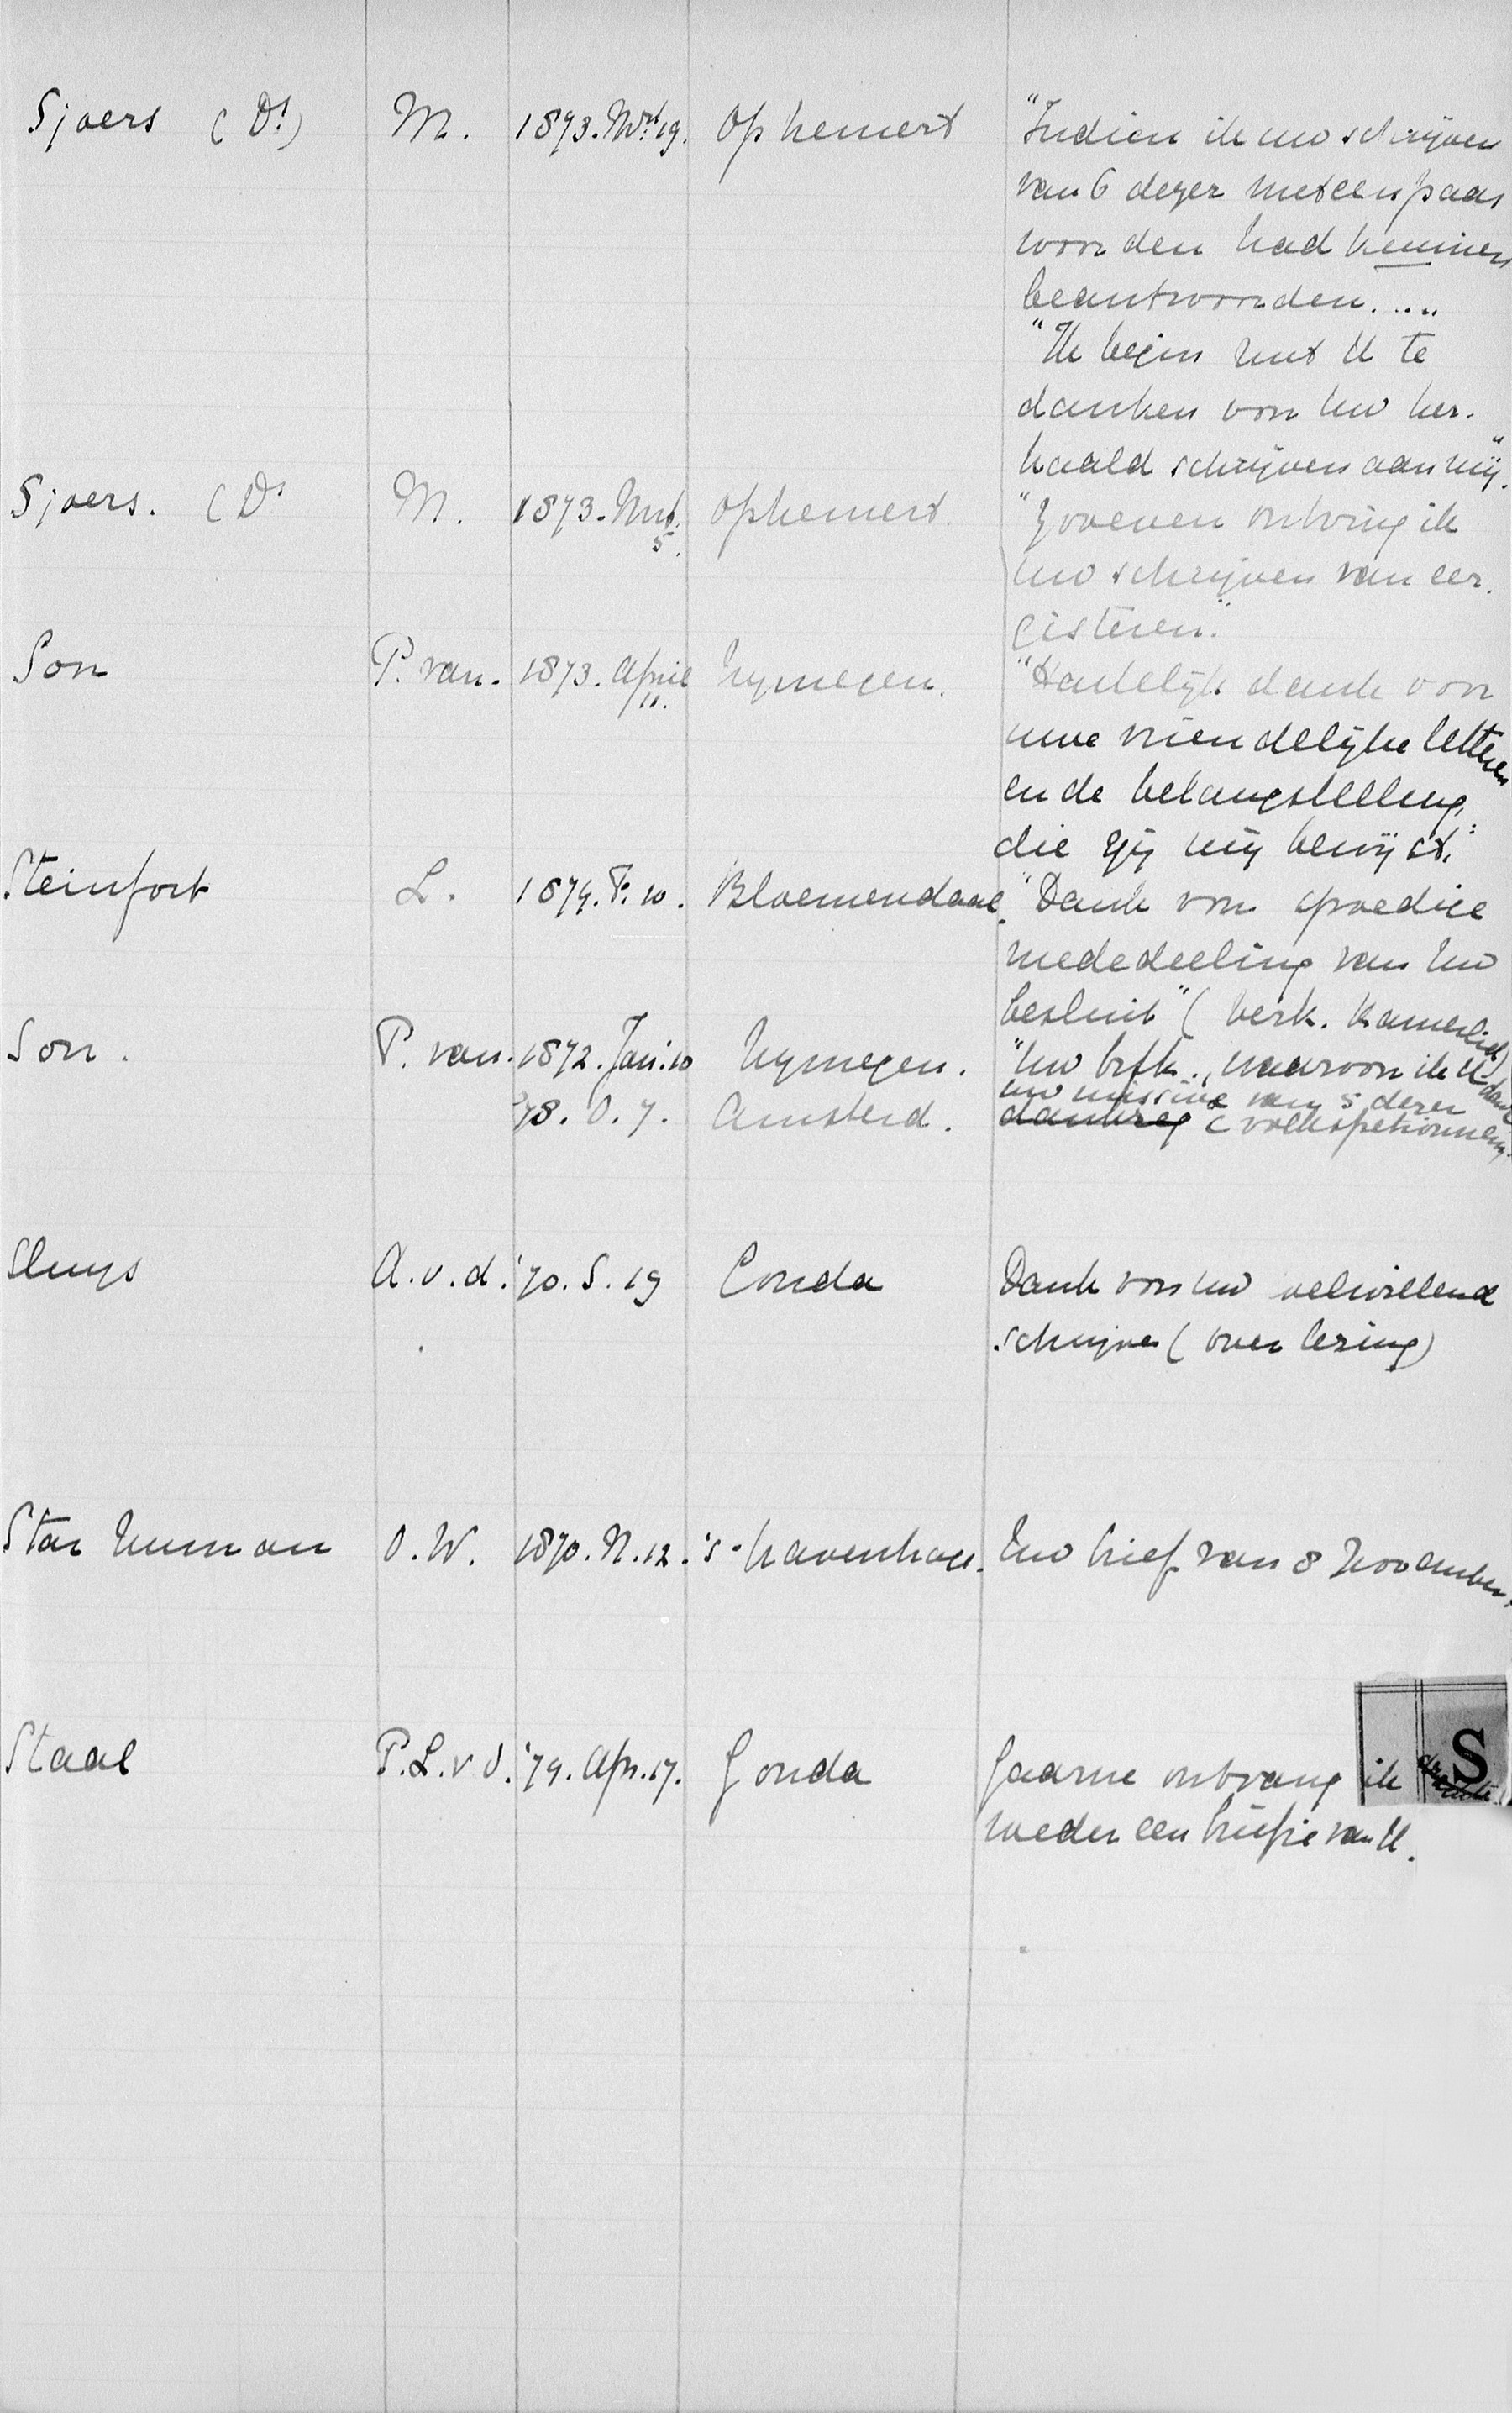 Sjoers (Ds) M. 1873. Mrt 19. Ophemert "Indien ik uw schrijven
van 6 dezer met een paar
woorden had kunnen
beantwoorden....
"Ik begin met U te
danken voor uw her-
haald schrijven aan mij."
Sjoers. (Ds M. 1873. Mrt. 5. Ophemert. "Zooeven ontving ik
uw schrijven van eer-
gisteren."
Son P. van. 1873. April 11. Nymegen. "Hartelijk dank voor
uwe vriendelijke letteren
en de belangstelling,
die gij mij bewijst."
Steinfort L. 1874. F. 10. Bloemendaal. "Dank voor spoedige
mededeeling van uw
besluit" (verk. Kamerlid)
Son. P. van. 1872. Jan. 10 Nymegen. "Uw brfk., waarvoor ik U dank
uw missive van 5 dezer
'78. O. 7. Amsterd. dankzeg (volkspetionnem.
Sluys A. v. d. '70. S. 19 Gouda Dank voor uw welwillend
schrijven (over lezing)
Star Numan O. W. 1870. N. 12. 's-Gravenhage. Uw brief van 8 November.
Staal P. L. v d. '79. Apr. 17. Gouda Gaarne ontvang ik
weder een briefje van U.
S